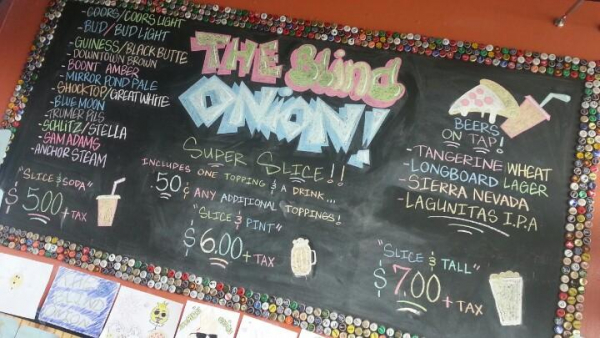 -COORS/COORS LIGHT
-BUD/BUD LIGHT
-GUINESS/BLACK BUTTE
-DOWNTOWN BROWN
-BOONT AMBER
-MIRROR POND PALE
-SHOCKTOP/GREAT WHITE
-BLUE MOON
-TRUMER PILS
-SCHLITZ/STELLA
-SAM ADAMS
-ANCHOR STEAM
"SLICE & SODA"
$5.00 + TAX
THE Blind
ONION!
SUPER SLICE!!
INCLUDES ONE TOPPING & A DRINK...
.50¢ ANY ADDITIONAL TOPPINGS!
"SLICE & PINT"
$6.00 + TAX
BEERS
ON TAP!
-TANGERINE WHEAT
-LONGBOARD LAGER
-SIERRA NEVADA
-LAGUNITAS I.P.A
"SLICE & TALL"
$7.00 + TAX